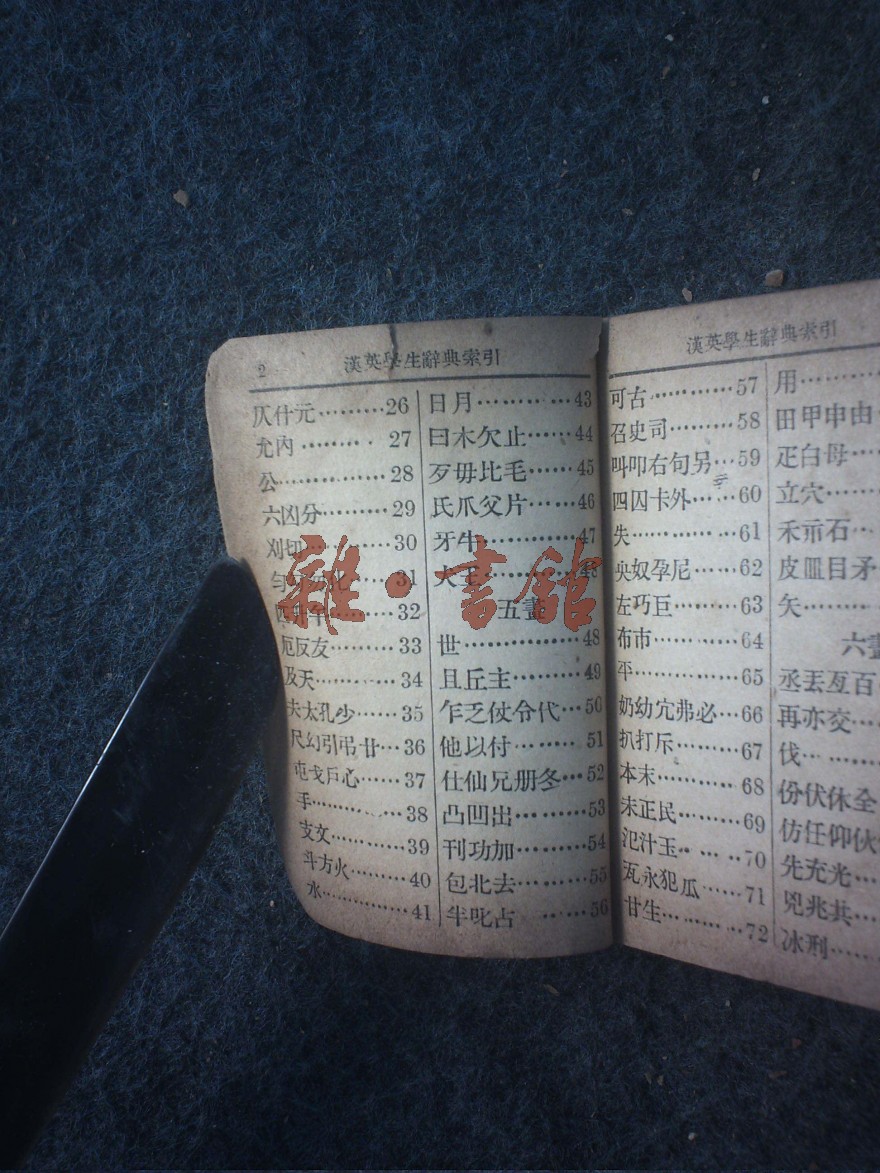 2 漢英學生辭典索引
仄什元………26
尤內………27
公………28
六凶分………29
刈切………30
勻 化……31
匹升午………32
厄反友………33
及天………34
夫太孔少……35
尺幻引弔廿…36
屯戈戶心……37
手………38
支文………39
斗方火………40
水………41
日月………43
曰木欠止……44
歹毋比毛……45
氏爪父片……46
牙牛………47
犬王………48
五畫
世………48
且丘主………49
乍乏仗令代…50
他以付………51
仕仙兄册冬…52
凸凹出………53
刊功加………54
包北去………55
半叱占……56
漢英學生辭典索引
可古………57
召史司………58
叫叩右句另…59
四囚卡外……60
失………61
央奴孕尼……62
左巧巨………63
布市………64
平………65
奶幼宂弗必…66
扒打斥………67
本末………68
未正民………69
氾汁玉………70
瓦永犯瓜……71
甘生………72
用………
田甲申由
疋白母…
立穴……
禾示石…
皮皿目矛
矢………
六畫
丞丟亙百
再亦交…
伐………
份伏休全
仿任仰伙
先充光…
兇兆共…
冰刑……
雜·書館